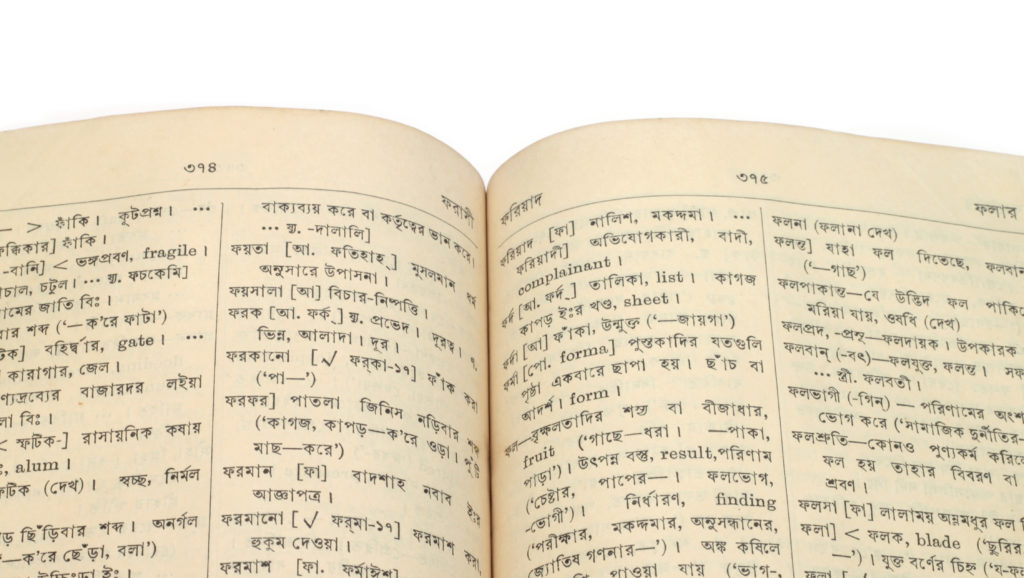 ৩৭৪
ফরাসী
— > ফাঁকি। কূটপ্রশ্ন। ···
ফক্কিকার] ফাঁকি।
-বানি] < ভঙ্গপ্রবণ, fragile।
চাল, চটুল। ··· ম্বা. ফচকেমি]
মের জাতি বিঃ।
ার শব্দ (‘—ক’রে ফাটা’)
টক] বহির্দ্বার, gate। ···
কারাগার, জেল।
ণ্যদ্রব্যের বাজারদর লইয়া
লা বিঃ।
< ফটিক-] রাসায়নিক কষায়
alum।
ফটিক (দেখ)। স্বচ্ছ, নির্মল
ড় ছিঁড়িবার শব্দ। অনর্গল
‘—ক’রে ছেঁড়া, বলা’)
বাক্যব্যয় করে বা কর্তৃত্বের ভান করে।
··· ম্বা. -দালালি]
ফয়তা [আ. ফতিহাহ্] মুসলমান ধর্ম
অনুসারে উপাসনা।
ফয়সালা [আ] বিচার-নিষ্পত্তি।
ফরক [আ. ফর্ক্] ম্বা. প্রভেদ। দূরত্ব। ৭.
ভিন্ন, আলাদা। দূর।
ফরকানো [√ ফর্কা-১৭] ফাঁক করা
(‘পা—’)
ফরফর] পাতলা জিনিস নড়িবার শব্দ
(‘কাগজ, কাপড়—ক’রে ওড়া। পুঁটি
মাছ—করে’)
ফরমান [ফা] বাদশাহ নবাব ইঃর
আজ্ঞাপত্র।
ফরমানো [√ ফর্মা-১৭] ফরমাশ করা,
হুকুম দেওয়া।
ফরমাশ [ফা. ফর্মাঈশ]
৩৭৫
ফরিয়াদ
ফলার
ফরিয়াদ [ফা] নালিশ, মকদ্দমা। ···
ফরিয়াদী] অভিযোগকারী, বাদী,
complainant।
ফর্দ [আ. ফর্দ্] তালিকা, list। কাগজ
কাপড় ইঃর খণ্ড, sheet।
ফর্দা [আ] ফাঁকা, উন্মুক্ত (‘—জায়গা’)
ফর্মা [পো. forma] পুস্তকাদির যতগুলি
পৃষ্ঠা একবারে ছাপা হয়। ছাঁচ বা
আদর্শ। form।
ফল—বৃক্ষলতাদির শস্য বা বীজাধার,
fruit (‘গাছে—ধরা। —পাকা,
পাড়া’)। উৎপন্ন বস্তু, result, পরিণাম
(‘চেষ্টার, পাপের—। ফলভোগ,
-ভোগী’)। নির্ধারণ, finding
(‘পরীক্ষার, মকদ্দমার, অনুসন্ধানের,
জ্যোতিষ গণনার—’)। অঙ্ক কষিলে
পাওয়া যায় (‘ভাগ-,
ফলনা (ফলানা দেখ)
ফলন্ত] যাহা ফল দিতেছে, ফলবান
(‘—গাছ’)
ফলপাকান্ত—যে উদ্ভিদ ফল পাকিলে
মরিয়া যায়, ওষধি (দেখ)
ফলপ্রদ, -প্রসূ—ফলদায়ক। উপকারক
ফলবান্ (-বৎ)—ফলযুক্ত, ফলন্ত। সফ
··· স্ত্রী. ফলবতী।
ফলভাগী (-গিন্) — পরিণামের অংশ
ভোগ করে (‘সামাজিক দুর্নীতির-
ফলশ্রুতি—কোনও পুণ্যকর্ম করিলে
ফল হয় তাহার বিবরণ বা
শ্রবণ।
ফলসা [ফা] লালাময় অম্লমধুর ফল
ফলা] < ফলক, blade (‘ছুরির
—’)। যুক্ত বর্ণের চিহ্ন (‘য-ফ